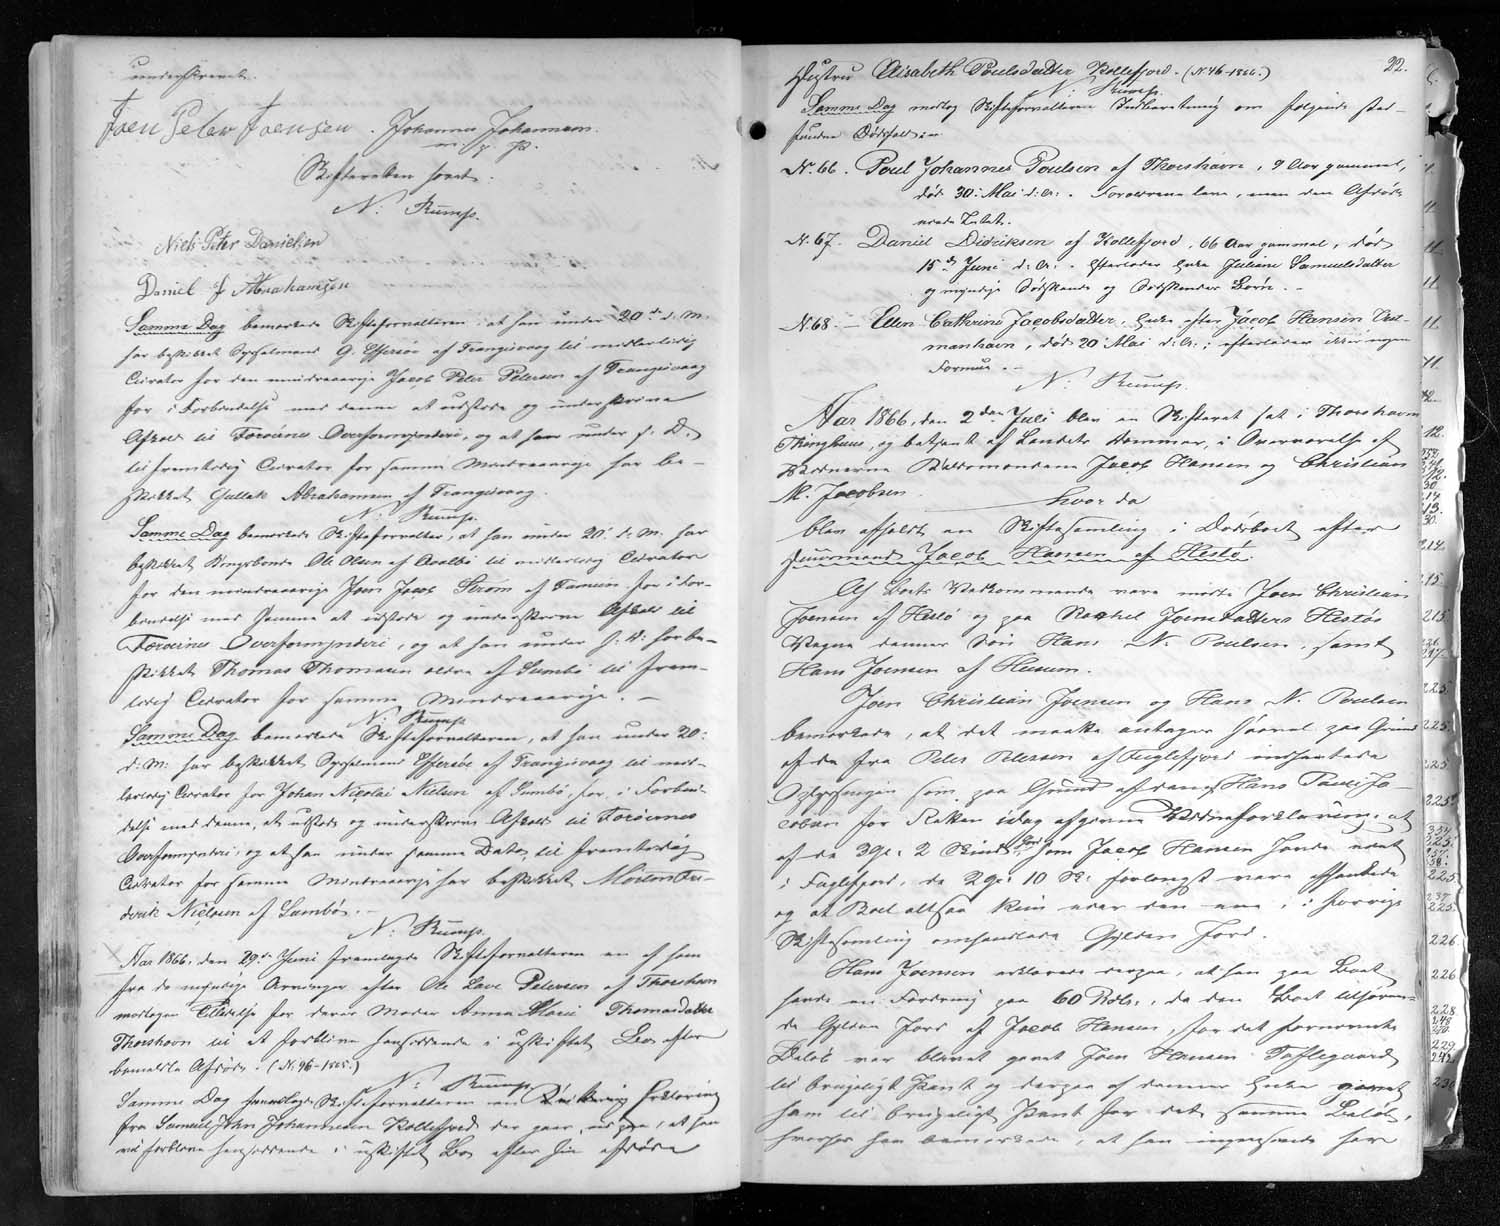 underskrevet.
Joen Peter Joensen. Johannes Johannesen.
m. f. P.
Skifteretten hævet.
N: Rump.
Niels Peter Danielsen
Daniel J Abrahamsen
Samme Dag bemærkede Skifteforvalteren at han under 20de d. M.
har beskikket Sysselmand G. Effersøe af Trangisvaag til midlertidig
Curator for den mindreaarige Jacob Peter Petersen af Trangisvaag
for i Forbindelse med denne at udstede og underskrive
Afkald til Færøernes Overformynderi, og at han under s. D.
til fremtidig Curator for samme Mindreaarige har be-
skikket Gullak Abrahamsen af Trangisvaag.
N: Rump.
Samme Dag bemærkede Skifteforvalter, at han under 20. d. M. har
beskikket Kongsbonde Ole Olsen af Qvalbø til midlertidig Curator
for den mindreaarige Joen Jacob Strøm af Famien for i For-
bindelse med Samme at udstede og underskrive Afkald til
Færøernes Overformynderi, og at han under s. D. har be-
skikket Thomas Thomasen ældre af Sumbø til frem-
tidig Curator for samme Mindreaarige. —
N: Rump
Samme Dag bemærkede Skifteforvalteren, at han under 20:
d: M: har beskikket Sysselmand Effersøe af Trangisvaag til mid-
lertidig Curator for Johan Nicolai Nielsen af Sumbø, for i Forbin-
delse med denne, at udstede og underskrive Afkald til Færøernes
Overformynderi, og at han under samme Dato til fremtidig
Curator for samme Mindreaarige har beskikket Morten Fre-
derik Nielsen af Sumbø. —
N: Rump.
Aar 1866. den 29de Juni fremlagde Skifteforvalteren en af ham
fra de myndige Arvinger efter Ole Lave Petersen af Thorshavn
modtagen Tilladelse for deres Moder Anna Marie Thomasdatter
Thorshavn til at forblive hensiddende i uskiftet Bo efter
bemeldte Afdøde. (N. 96-1865.)
N: Rump
Samme Dag fremlagde Skifteforvalteren en Erklæring
fra Samuel John Johannesen Kollefjord der gaar ud paa, at han
vil forblive hensiddende i uskiftet Bo efter sin afdøde
22.
Hustru Elisabeth Poulsdatter Kollefjord. (N. 46-1866.)
N: Rump.
Samme Dag modtog Skifteforvalteren Indberetning om følgende sted-
fundne Dødsfald: —
N. 66. Poul Johannes Poulsen af Thorshavn, 9 Aar gammel,
død 30. Mai d: A: . Forældrene leve, men den Afdøde
N. 67. Daniel Didriksen af Kollefjord, 66 Aar gammel, død
15de Juni d: A: . Efterlader Enke Juliane Samuelsdatter
og myndige Sødskende og Sødskendes Børn. —
N. 68. — Ellen Cathrine Jacobsdatter, Enke efter Jacob Hansen Vest-
manhavn, død 20 Mai d: A: ; efterlader ikke nogen
Formue. —
N: Rump.
Aar 1866, den 2den Juli blev en Skifteret sat i Thorshavn
Thinghuus, og betjent af Landets Dommer, i Overværelse af
Vidnerne Baadsmændene Jacob Hansen og Christian
M. Jacobsen. hvor da
blev afholdt en Skiftesamling i Dødsboet efter
Huusmand Jacob Hansen af Hestø.
Af Boets Vedkommende vare mødte Joen Christian
Joensen af Hestø og paa Rachel Joensdatters Hestøs
Vegne dennes Søn Hans N. Poulsen, samt
Hans Joensen af Husum.
Joen Christian Joensen og Hans N. Poulsen
bemærkede, at det maatte antages saavel paa Grund
af de fra Peter Petersen af Fuglefjord indhentede
Oplysninger som paa Grund af den af Hans Pauli Ja-
cobsen for Retten idag afgivne Vidneforklaring, at
af de 3 Gl: 2 Skind Jord som Jacob Hansen havde eiet
i Fuglefjord, de 2 Gl: 10 Sk: forlængst vare afhændede
og at Boet altsaa kun eier den ene i forrige
Skiftesamling omhandlede Gylden Jord.
Hans Joensen erklærede derpaa at han paa Boet
havde en Fordring paa 60 Rdlr., da den Boet tilhøren-
de Gylden Jord af Jacob Hansen, for det fornævnte
Beløb var blevet givet Joen Hansen Toftegaard
til brugeligt Pant og derpaa af dennes Enke givet
ham til brugeligt Pant for det samme Beløb,
hvorhos han bemærkede, at han ingensinde havde